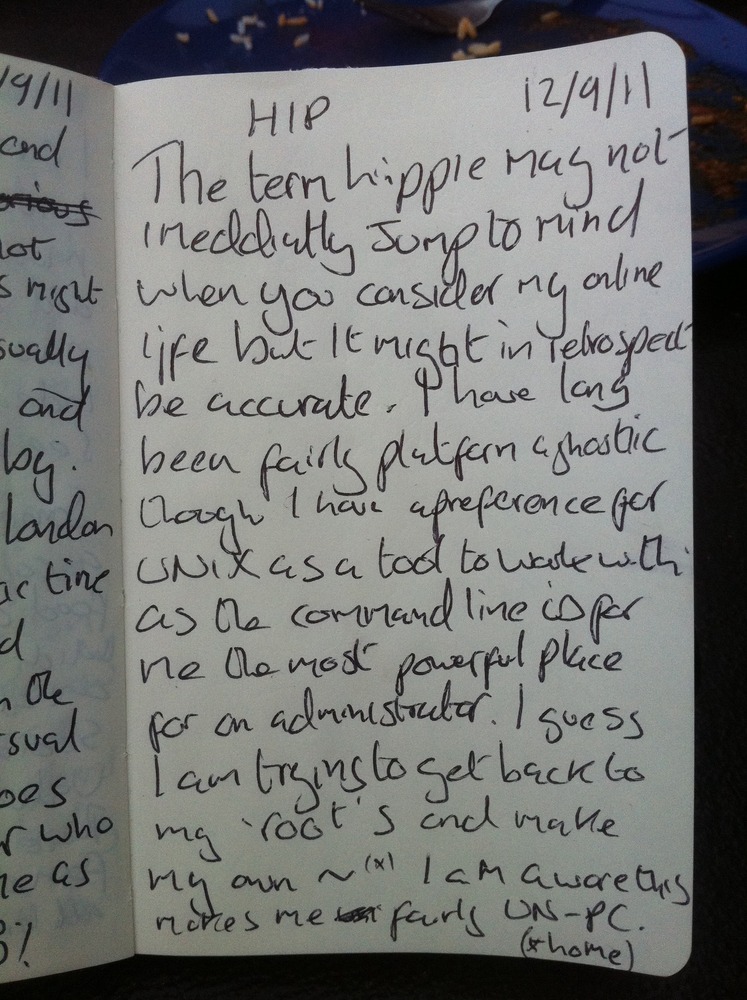 /9/11
and
not
s might
sually
and
by.
London
ac time
d
n the
sual
oes
r who
ne as
8%
HIP
12/9/11
The term hippie may not
imeddiatly Jump to mind
when you consider my online
life but It might in retrospect
be accurate. I have long
been fairly platform agnostic
though I have a preference for
UNIX as a tool to work with
as the command line is for
me the most powerful place
for an administrator. I guess
I am trying to get back to
my 'root's and make
my own ~(x) I am aware this
makes me fairly UN-PC.
(*home)